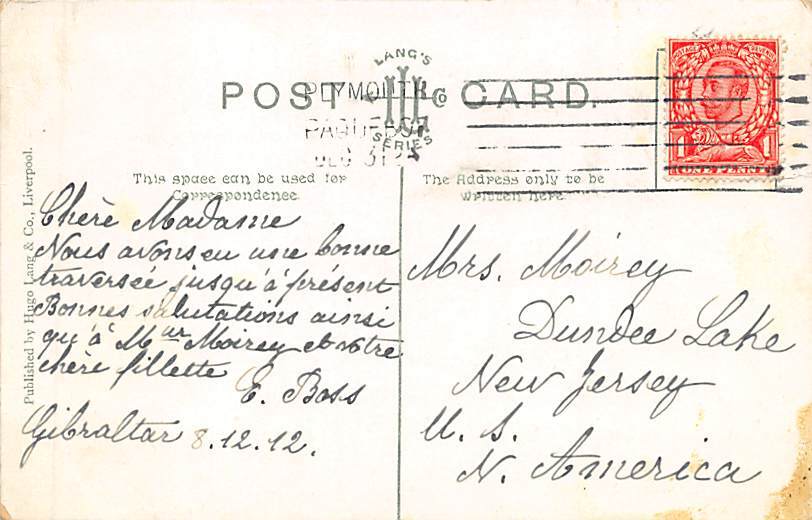 POST CARD.
LANG'S
Co
SERIES
PLYMOUTH
PAQUEBOT
DEC
POSTAGE REVENUE
1 1
ONE PENNY
This space can be used for
Correspondence
The Address only to be
written here
Published by Hugo Lang & Co., Liverpool.
Chère Madame
Nous avons eu une bonne
traversée jusqu'à présent
Bonnes salutations ainsi
qu'à Mur Moirey et votre
chère fillette
E. Boss
Gibraltar 8.12.12.
Mrs. Moirey
Dundee Lake
New Jersey
U. S.
N. America